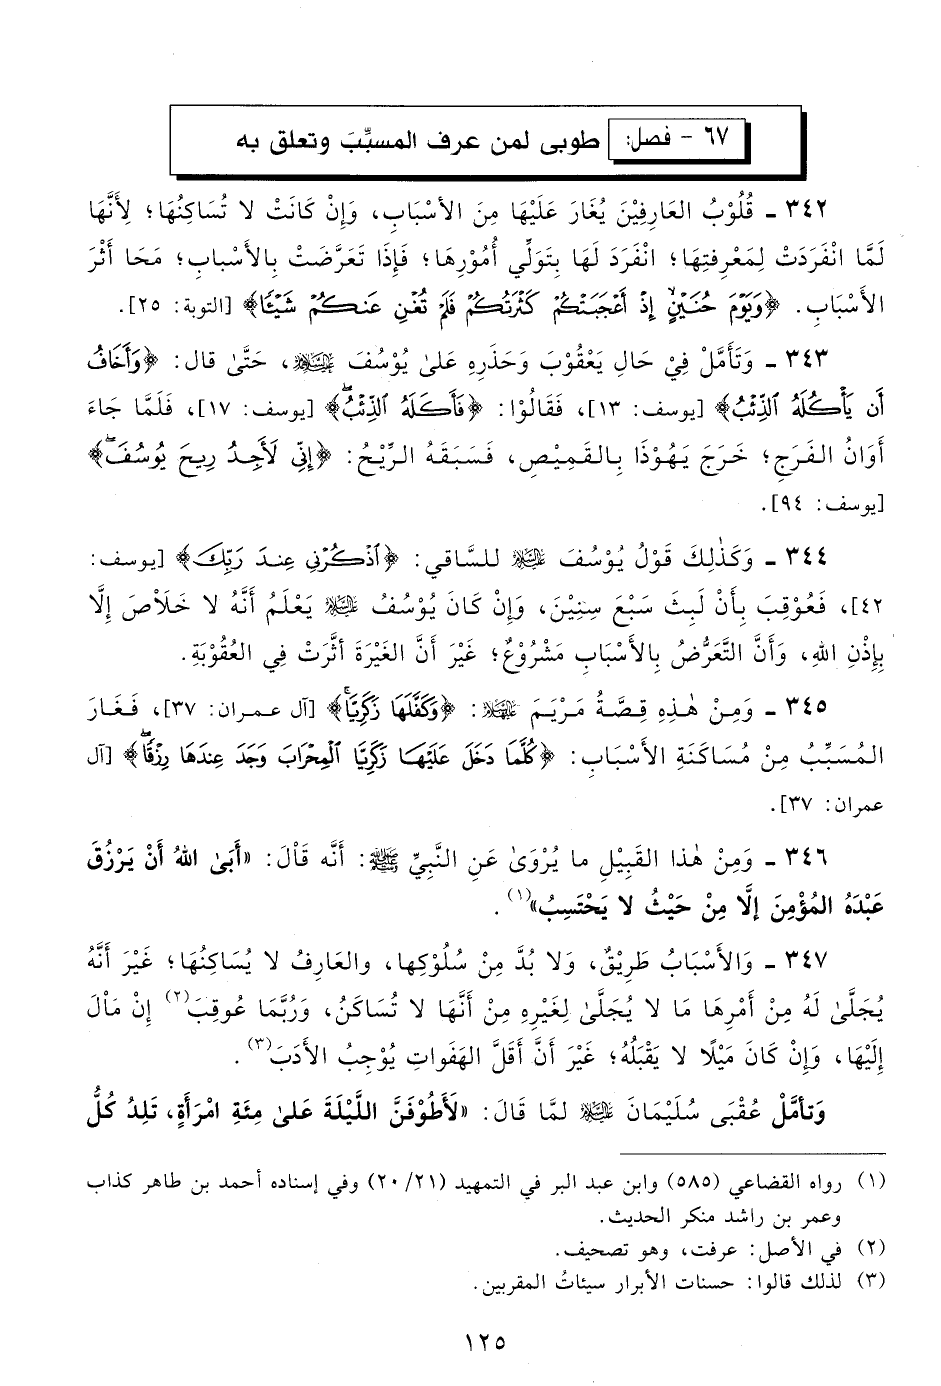 ٦٧ - فصل: طوبى لمن عرف المسبِّبَ وتعلق به
٣٤٢ ـ قُلُوْبُ العَارِفِيْنَ يُغَارَ عَلَيْهَا مِنَ الأَسْبَابِ، وَإِنْ كَانَتْ لا تُسَاكِنُهَا؛ لِأَنَّهَا
لَمَّا انْفَرَدَتْ لِمَعْرِفَتِهَا؛ انْفَرَدَ لَهَا بِتَوَلِّي أُمُوْرِهَا؛ فَإِذَا تَعَرَّضَتْ بِالأَسْبابِ؛ مَحَا أَثَرَ
الأَسْبَابِ. ﴿وَيَوْمَ حُنَيْنٍ إِذْ أَعْجَبَتْكُمْ كَثْرَتُكُمْ فَلَمْ تُغْنِ عَنكُمْ شَيْئًا﴾ [التوبة: ٢٥].
٣٤٣ ـ وَتَأَمَّلْ فِيْ حَالِ يَعْقُوْبَ وَحَذَرِهِ عَلىٰ يُوْسُفَ عليه السلام، حَتَّىٰ قال: ﴿وَأَخَافُ
أَن يَأْكُلَهُ ٱلذِّئْبُ﴾ [يوسف: ١٣]، فَقَالُوْا: ﴿فَأَكَلَهُ ٱلذِّئْبُ﴾ [يوسف: ١٧]، فَلَمَّا جَاءَ
أَوَانُ الفَرَجِ؛ خَرَجَ يَهُوْذَا بِالقَمِيْصِ، فَسَبَقَهُ الرِّيْحُ: ﴿إِنِّي لَأَجِدُ رِيحَ يُوسُفَ﴾
[يوسف: ٩٤].
٣٤٤ ـ وَكَذٰلِكَ قَوْلُ يُوْسُفَ عليه السلام للسَّاقي: ﴿ٱذْكُرْنِي عِندَ رَبِّكَ﴾ [يوسف:
٤٢]، فَعُوْقِبَ بِأَنْ لَبِثَ سَبْعَ سِنِيْنَ، وَإِنْ كَانَ يُوْسُفُ عليه السلام يَعْلَمُ أَنَّهُ لا خَلَاصَ إِلَّا
بِإِذْنِ اللهِ، وَأَنَّ التَّعَرُّضُ بِالأَسْبَابِ مَشْرُوْعٌ؛ غَيْرَ أَنَّ الغَيْرَةَ أَثَّرَتْ فِي العُقُوْبَةِ.
٣٤٥ ـ وَمِنْ هٰذِهِ قِصَّةُ مَرْيَمَ عليها السلام: ﴿وَكَفَّلَهَا زَكَرِيَّا﴾ [آل عمران: ٣٧]، فَغَارَ
المُسَبِّبُ مِنْ مُسَاكَنَةِ الأَسْبَابِ: ﴿كُلَّمَا دَخَلَ عَلَيْهَا زَكَرِيَّا ٱلْمِحْرَابَ وَجَدَ عِندَهَا رِزْقًا﴾ [آل
عمران: ٣٧].
٣٤٦ ـ وَمِنْ هٰذا القَبِيْلِ ما يُرْوَىٰ عَنِ النَّبِيِّ ﷺ: أَنَّه قَالَ: «أَبَىٰ اللهُ أَنْ يَرْزُقَ
عَبْدَهُ المُؤْمِنَ إلَّا مِنْ حَيْثُ لا يَحْتَسِبُ»(١).
٣٤٧ ـ وَالأَسْبَابُ طَرِيْقٌ، وَلا بُدَّ مِنْ سُلُوْكِها، والعَارِفُ لا يُسَاكِنُهَا؛ غَيْرَ أَنَّهُ
يُجَلَّىٰ لَهُ مِنْ أَمْرِهَا مَا لا يُجَلَّىٰ لِغَيْرِهِ مِنْ أَنَّهَا لا تُسَاكَنُ، وَرُبَّمَا عُوقِبَ(٢) إِنْ مَاْلَ
إِلَيْهَا، وَإِنْ كَانَ مَيْلًا لا يَقْبَلُهُ؛ غَيْرَ أَنَّ أَقَلَّ الهَفَواتِ يُوْجِبُ الأَدَبَ(٣).
وَتأمَّلْ عُقْبَى سُلَيْمَانَ عليه السلام لمَّا قَالَ: «لَأَطُوْفَنَّ اللَّيْلَةَ عَلىٰ مِئَةِ امْرَأَةٍ، تَلِدُ كُلُّ
(١) رواه القضاعي (٥٨٥) وابن عبد البر في التمهيد (٢٠/٢١) وفي إسناده أحمد بن طاهر كذاب
وعمر بن راشد منكر الحديث.
(٢) في الأصل: عرفت، وهو تصحيف.
(٣) لذلك قالوا: حسنات الأبرار سيئاتُ المقربين.
١٢٥